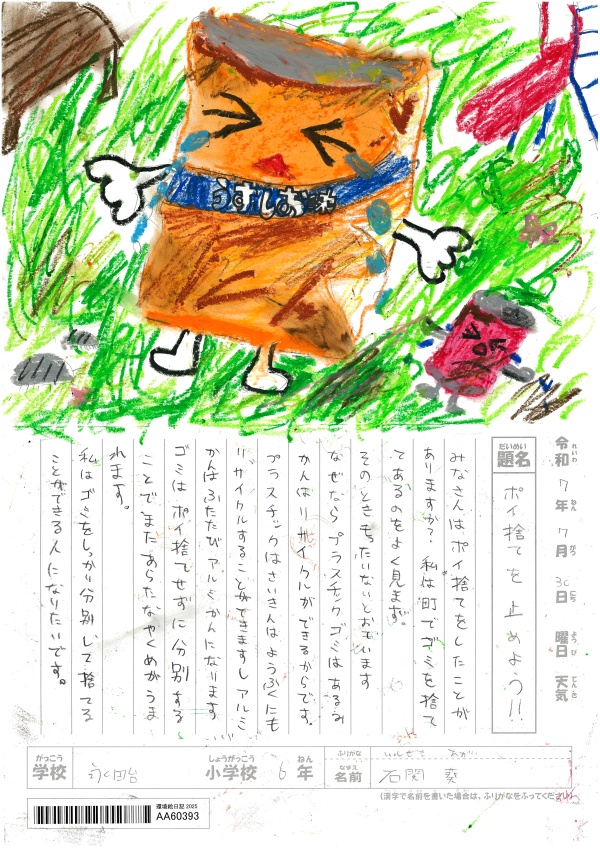 うすしお味
令和7年7月30日 曜日 天気
れいわ ねん がつ にち ようび てんき
だいめい
題名 ポイ捨てを止めよう!!
みなさんはポイ捨てをしたことが
ありますか?私は町でゴミを捨て
てあるのをよく見ます。
そのときもったいないとおもいます
なぜならプラスチックゴミはあるみ
かんはリサイクルができるからです。
プラスチックはさいきんはようふくにも
リサイクルすることができますしアルミ
かんはふたたびアルミかんになります
ゴミはポイ捨てせずに分別する
ことでまたあらたなやくめがうま
れます。
私はゴミをしっかり分別して捨てる
ことができる人になりたいです。
がっこう しょうがっこう ねん ふりがな いしぜき あおい
学校 小学校 6年 なまえ 名前 石関 葵
(漢字で名前を書いた場合は、ふりがなをふってください)
環境絵日記 2025
AA60393